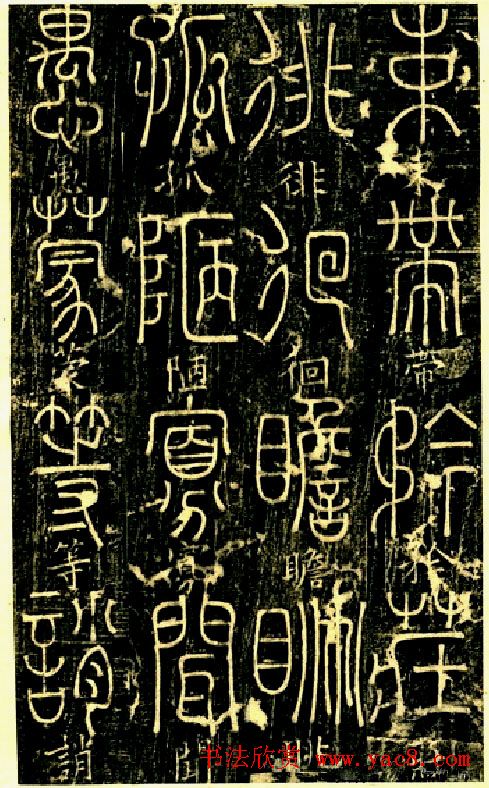 束束帶帶矜矜莊
徘徘徊徊瞻瞻眺
孤孤陋陋寡寡聞聞
愚愚蒙蒙等等誚誚
书法欣赏 www.yac8.com